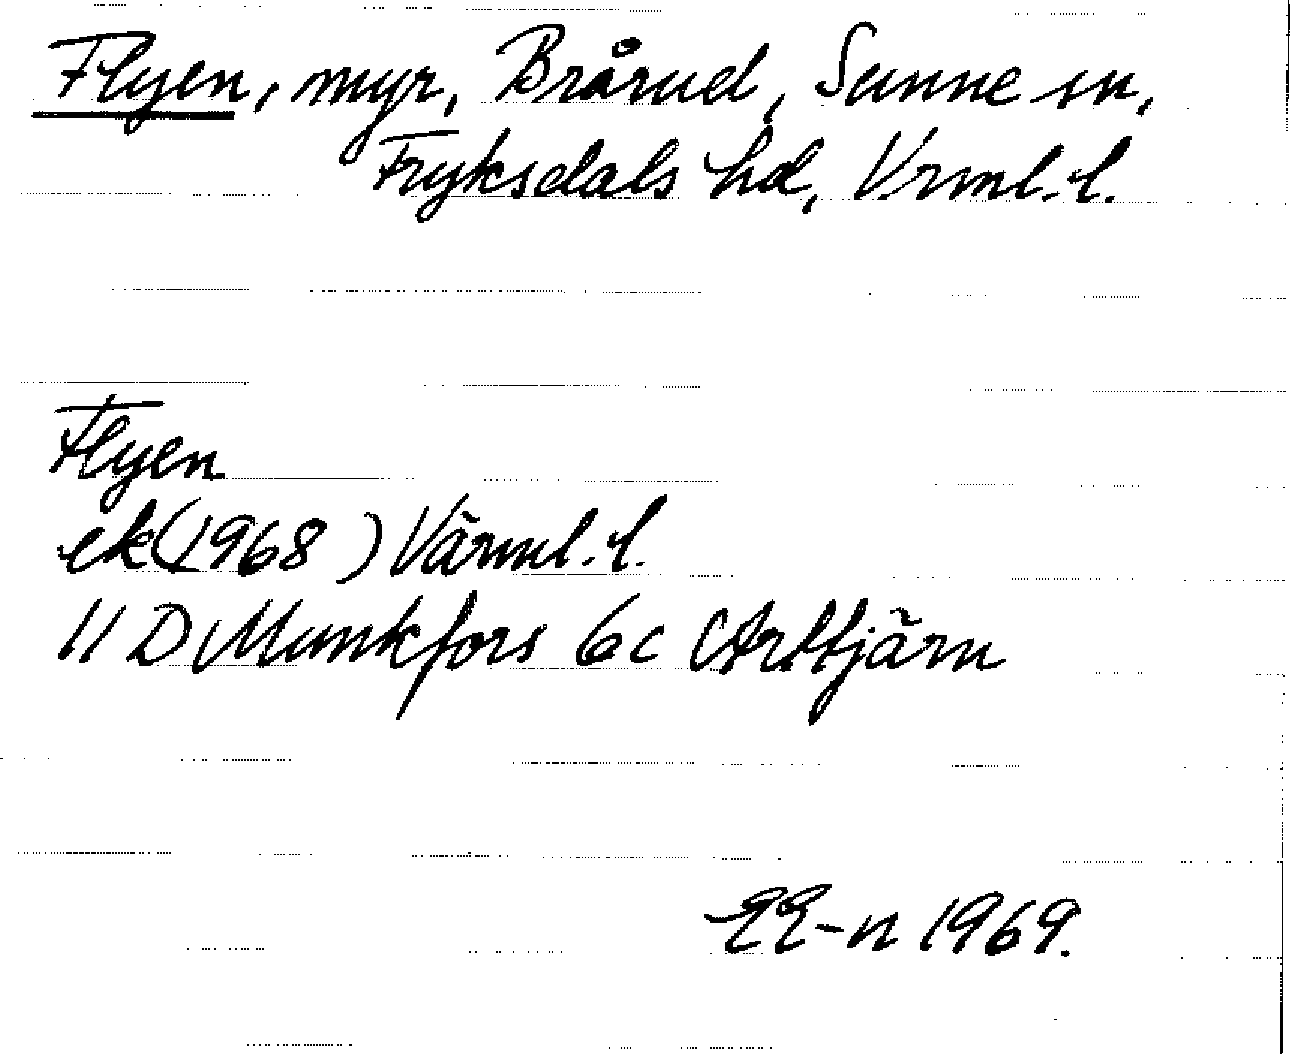 Flyen, myr, Brårud, Sunne sn,
Fryksdals hd, Vrml. l.
Flyen
ek (1968) Värml. l.
11 D Munkfors 6c Arttjärn
EE-n 1969.